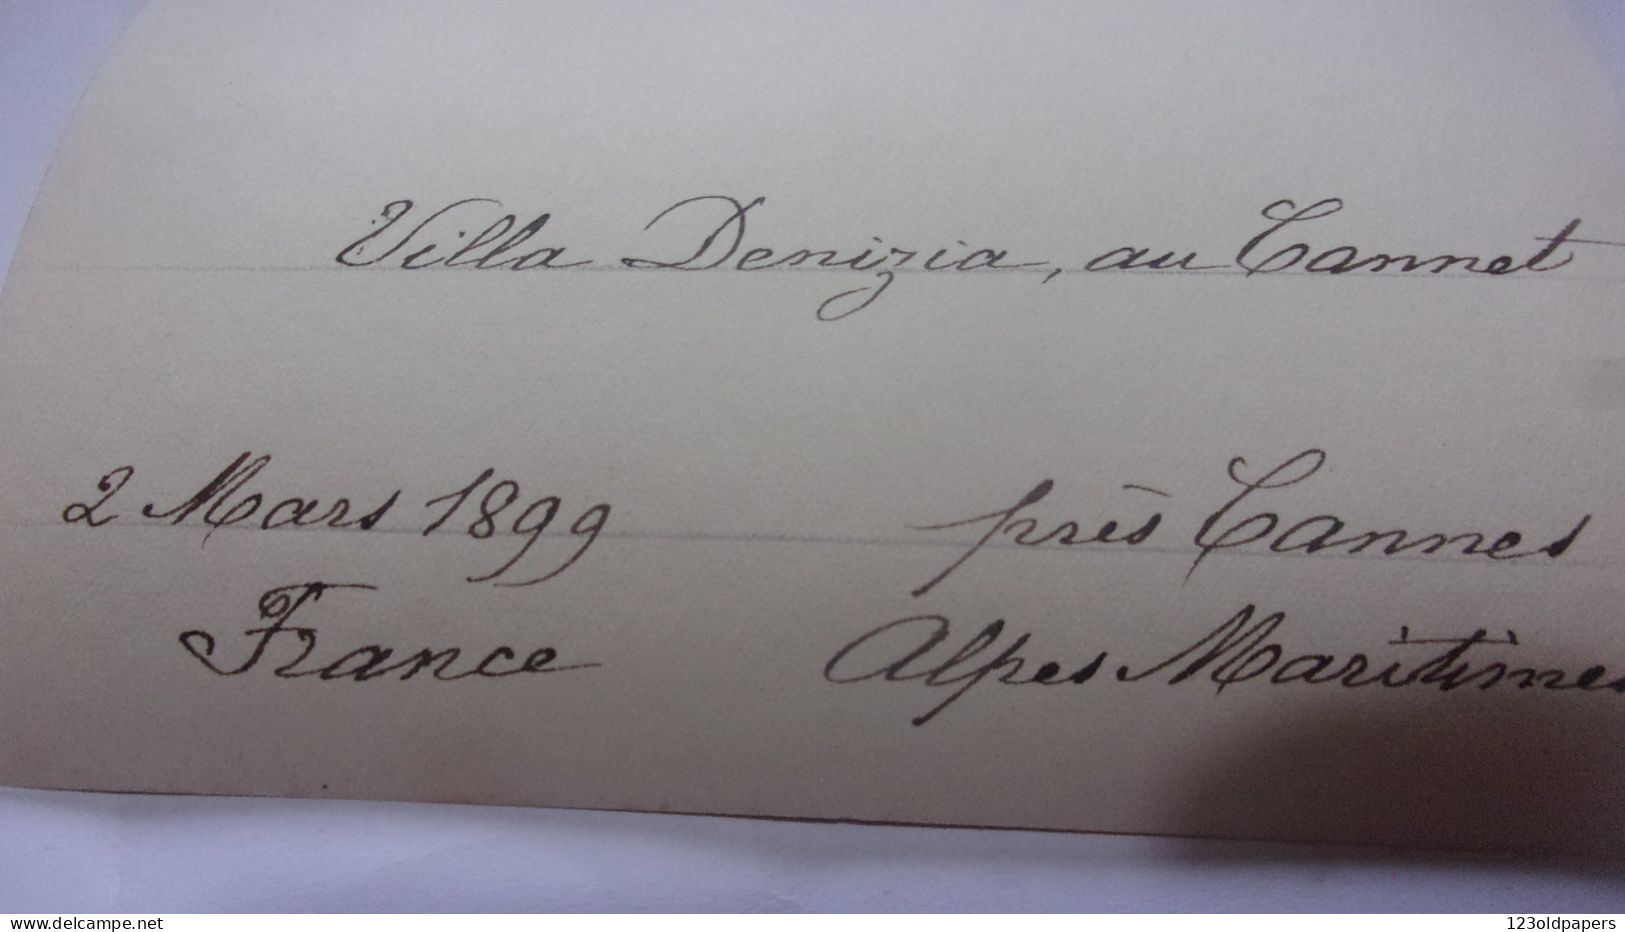 Villa Denizia, au Cannet
2 Mars 1899 près Cannes
France Alpes Maritimes
delcampe.net 123oldpapers